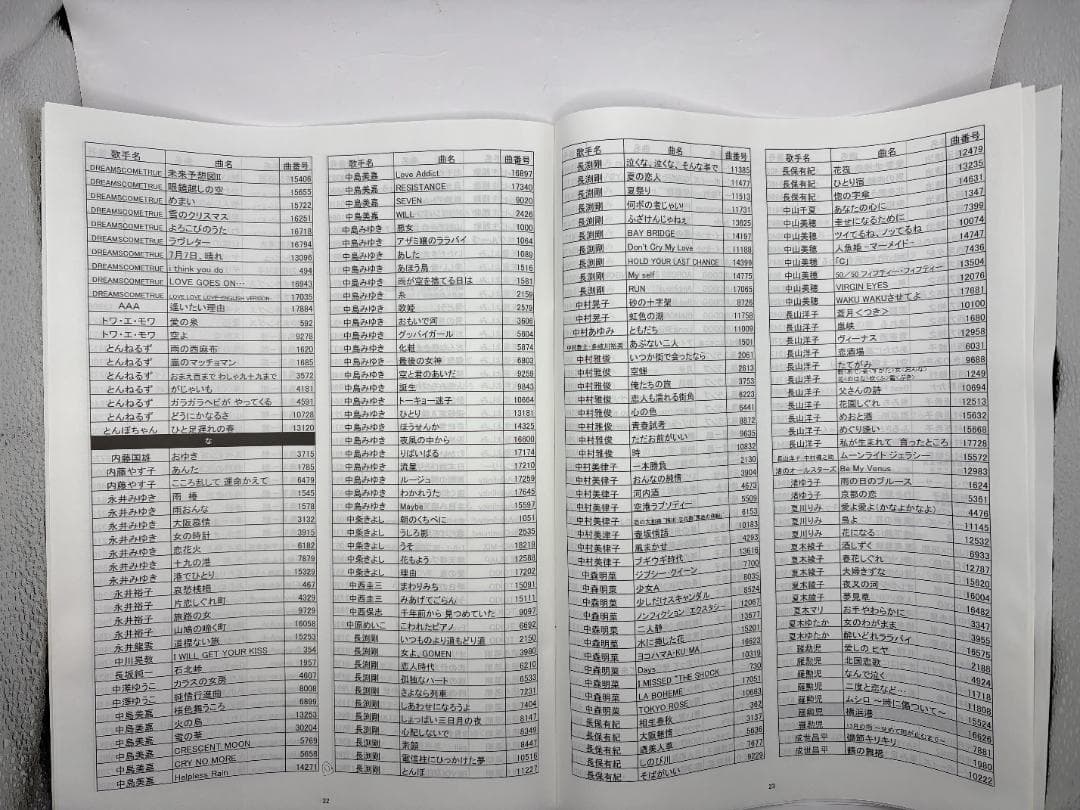 歌手名 曲名 曲番号
DREAMSCOMETRUE 未来予想図II 15406
DREAMSCOMETRUE 眼鏡越しの空 15655
DREAMSCOMETRUE めまい 15722
DREAMSCOMETRUE 雪のクリスマス 16251
DREAMSCOMETRUE よろこびのうた 16718
DREAMSCOMETRUE ラヴレター 16794
DREAMSCOMETRUE 7月7日、晴れ 13096
DREAMSCOMETRUE i think you do 494
DREAMSCOMETRUE LOVE GOES ON… 16943
DREAMSCOMETRUE LOVE LOVE LOVE-ENGLISH VERSION- 17035
AAA 逢いたい理由 17884
トワ・エ・モワ 愛の泉 592
トワ・エ・モワ 空よ 9276
とんねるず 雨の西麻布 1620
とんねるず 嵐のマッチョマン 1685
とんねるず おまえ百まで わしゃ九十九まで 3572
とんねるず がじゃいも 4181
とんねるず ガラガラヘビが やってくる 4591
とんねるず どうにかなるさ 10728
とんぼちゃん ひと足遅れの春 13120
な
内藤国雄 おゆき 3715
内藤やす子 あんた 1785
内藤やす子 こころ乱して 運命かえて 6479
永井みゆき 雨 椿 1545
永井みゆき 雨おんな 1578
永井みゆき 大阪慕情 3132
永井みゆき 女の時計 3915
永井みゆき 恋花火 6182
永井みゆき 十九の港 7879
永井みゆき 港でひとり 15329
永井裕子 哀愁桟橋 467
永井裕子 片恋しぐれ町 4329
永井裕子 旅路の女 9729
永井裕子 山鳩の啼く町 16058
永井龍雲 道標ない旅 15253
中川晃教 I WILL GET YOUR KISS 354
長坂純一 石北峠 1957
中澤ゆうこ カラスの女房 4607
中澤ゆうこ 純情行進曲 8008
中島美嘉 桜色舞うころ 6899
中島美嘉 火の鳥 13253
中島美嘉 雪の華 30204
中島美嘉 CRESCENT MOON 5769
中島美嘉 CRY NO MORE 5658
中島美嘉 Helpless Rain 14271
22
歌手名 曲名 曲番号
中島美嘉 Love Addict 16897
中島美嘉 RESISTANCE 17340
中島美嘉 SEVEN 9020
中島美嘉 WILL 2426
中島みゆき 悪女 1000
中島みゆき アザミ嬢のララバイ 1064
中島みゆき あした 1089
中島みゆき あほう鳥 1516
中島みゆき 雨が空を捨てる日は 1581
中島みゆき 糸 2159
中島みゆき 歌姫 2579
中島みゆき おもいで河 3606
中島みゆき グッバイガール 5804
中島みゆき 化粧 5874
中島みゆき 最後の女神 6803
中島みゆき 空と君のあいだ 9256
中島みゆき 誕生 9843
中島みゆき トーキョー迷子 10664
中島みゆき ひとり 13181
中島みゆき ほうせんか 14325
中島みゆき 夜風の中から 16600
中島みゆき りばいばる 17174
中島みゆき 流星 17210
中島みゆき ルージュ 17259
中島みゆき わかれうた 17645
中島みゆき Maybe 15597
中条きよし 朝のくちべに 1051
中条きよし うしろ影 2535
中条きよし うそ 18218
中条きよし 花もよう 12588
中条きよし 理由 17202
中西圭三 まわりみち 15091
中西圭三 みあげてごらん 15111
中西保志 千年前から 見つめていた 9097
中原めいこ こわれたピアノ 6692
長渕剛 いつものより道もどり道 2150
長渕剛 女よ、GOMEN 3980
長渕剛 恋人時代 6210
長渕剛 孤独なハート 6533
長渕剛 さよなら列車 7231
長渕剛 しあわせになろうよ 7404
長渕剛 しょっぱい三日月の夜 8147
長渕剛 心配しないで 8349
長渕剛 素顔 8447
長渕剛 電信柱にひっかけた夢 10516
長渕剛 とんぼ 11227
歌手名 曲名 曲番号
長渕剛 泣くな、泣くな、そんな事で 11385
長渕剛 夏の恋人 11477
長渕剛 夏祭り 11513
長渕剛 何ボの者じゃい! 11731
長渕剛 ふざけんじゃねぇ 13625
長渕剛 BAY BRIDGE 14167
長渕剛 Don't Cry My Love 11188
長渕剛 HOLD YOUR LAST CHANCE 14399
長渕剛 My self 14775
長渕剛 RUN 17065
中村晃子 砂の十字架 8726
中村晃子 虹色の湖 11758
中村あゆみ ともだち 11009
あぶない二人 1501
中村雅俊 いつか街で会ったなら 2061
中村雅俊 空蝉 2613
中村雅俊 俺たちの旅 3753
中村雅俊 恋人も濡れる街角 6223
中村雅俊 心の色 6441
中村雅俊 青春試考 8872
中村雅俊 ただお前がいい 9635
中村雅俊 時 10832
中村美律子 一本勝負 2130
中村美律子 おんなの純情 3904
中村美律子 河内酒 4673
中村美律子 空港ラプソディー 5509
中村美律子 6153
中村美律子 壷坂情話 10183
中村美律子 風まかせ 4293
中村美律子 ブギウギ時代 13616
中森明菜 ジプシー・クイーン 7700
中森明菜 少女A 8035
中森明菜 少しだけスキャンダル 8524
中森明菜 ノンフィクション エクスタシー 12067
中森明菜 二人静 13571
中森明菜 水に挿した花 15201
中森明菜 ヨコハマA・KU・MA 16623
中森明菜 Days 10319
中森明菜 I MISSED "THE SHOCK 730
中森明菜 LA BOHEME 17051
中森明菜 TOKYO ROSE 10683
長保有紀 相生春秋 362
長保有紀 大阪魅情 3137
長保有紀 酒美人草 5636
長保有紀 しのび川 7677
長保有紀 そばがいい 9229
23
歌手名 曲名 曲番号
長保有紀 花孤 12479
長保有紀 ひとり宿 13235
長保有紀 惚の字傘 14631
中山千夏 あなたの心に 1347
中山美穂 幸せになるために 7399
中山美穂 ツイてるね、ノッてるね 10074
中山美穂 人魚姫-マーメイド- 14747
中山美穂 「C」 7436
中山美穂 50/50 フィフティー・フィフティー 13504
中山美穂 VIRGIN EYES 12076
中山美穂 WAKU WAKUさせてよ 17681
長山洋子 蒼月<つき> 10100
長山洋子 嵐峡 1680
長山洋子 ヴィーナス 12958
長山洋子 恋酒場 6031
長山洋子 たてがみ 9688
長山洋子 1249
長山洋子 父さんの詩 10694
長山洋子 花園しぐれ 12513
長山洋子 めおと酒 15632
長山洋子 めぐり逢い 15668
長山洋子 私が生まれて 育ったところ 17728
ムーンライト ジェラシー 15572
渚のオールスターズ Be My Venus 12983
渚ゆう子 雨の日のブルース 1624
渚ゆう子 京都の恋 5361
夏川りみ 愛よ愛よ(かなよかなよ) 4476
夏川りみ 鳥よ 11145
夏木綾子 花になる 12532
夏木綾子 酒しずく 6933
夏木綾子 春花しぐれ 12787
夏木綾子 夫婦きずな 15020
夏木綾子 夜叉の河 16004
夏木綾子 夢見草 16482
夏木マリ お手やわらかに 3347
夏木ゆたか 女のわがまま 3955
夏木ゆたか 酔いどれララバイ 16575
羅勲児 愛しのヒヤ 2188
羅勲児 北国恋歌 4924
羅勲児 なんで泣く 11718
羅勲児 二度と恋など… 11808
羅勲児 ムシロ ~時に傷ついて~ 15524
羅勲児 横浜港 16626
成世昌平 慟節キリキリ 1980
成世昌平 鶴の舞橋 10222